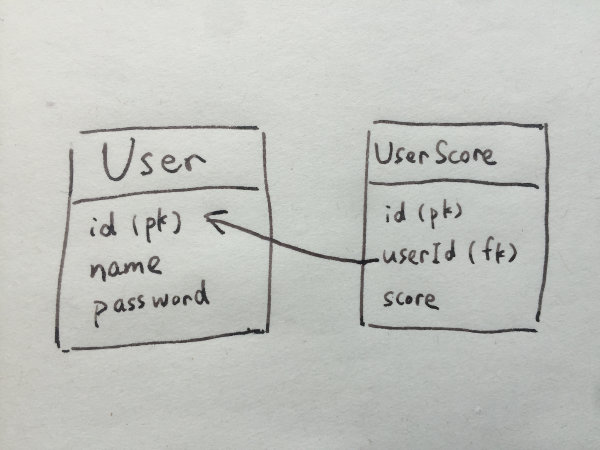 User
id (pk)
name
password
UserScore
id (pk)
userId (fk)
score